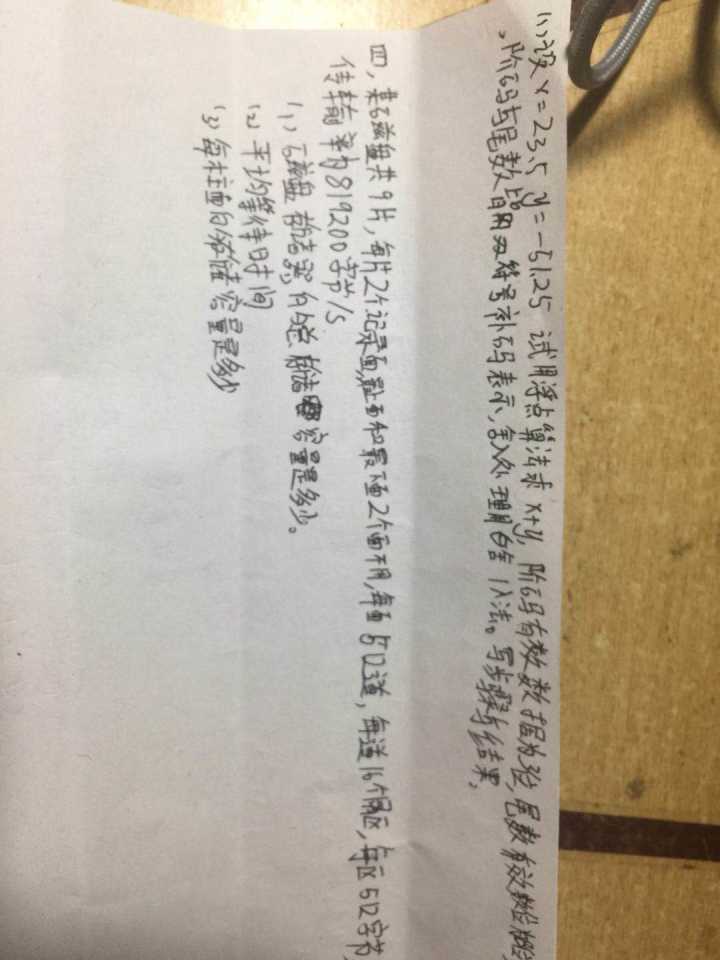 (1) 设 x=23.5 y=-51.25 试用浮点算法求 x+y, 阶码有效数据为3位, 尾数有效数位
阶码与尾数均用双符号补码表示, 舍入处理用0舍1入法。写步骤与结果,
四, 某磁盘共9片, 每片2个记录面, 最上面和最下面2个面不用, 每面512道, 每道16个扇区, 每区512字节,
传输率为819200字节/S
(1) 磁盘 的总 容量是多少。
(2) 平均等待时间
(3) 每柱面的存储容量是多少